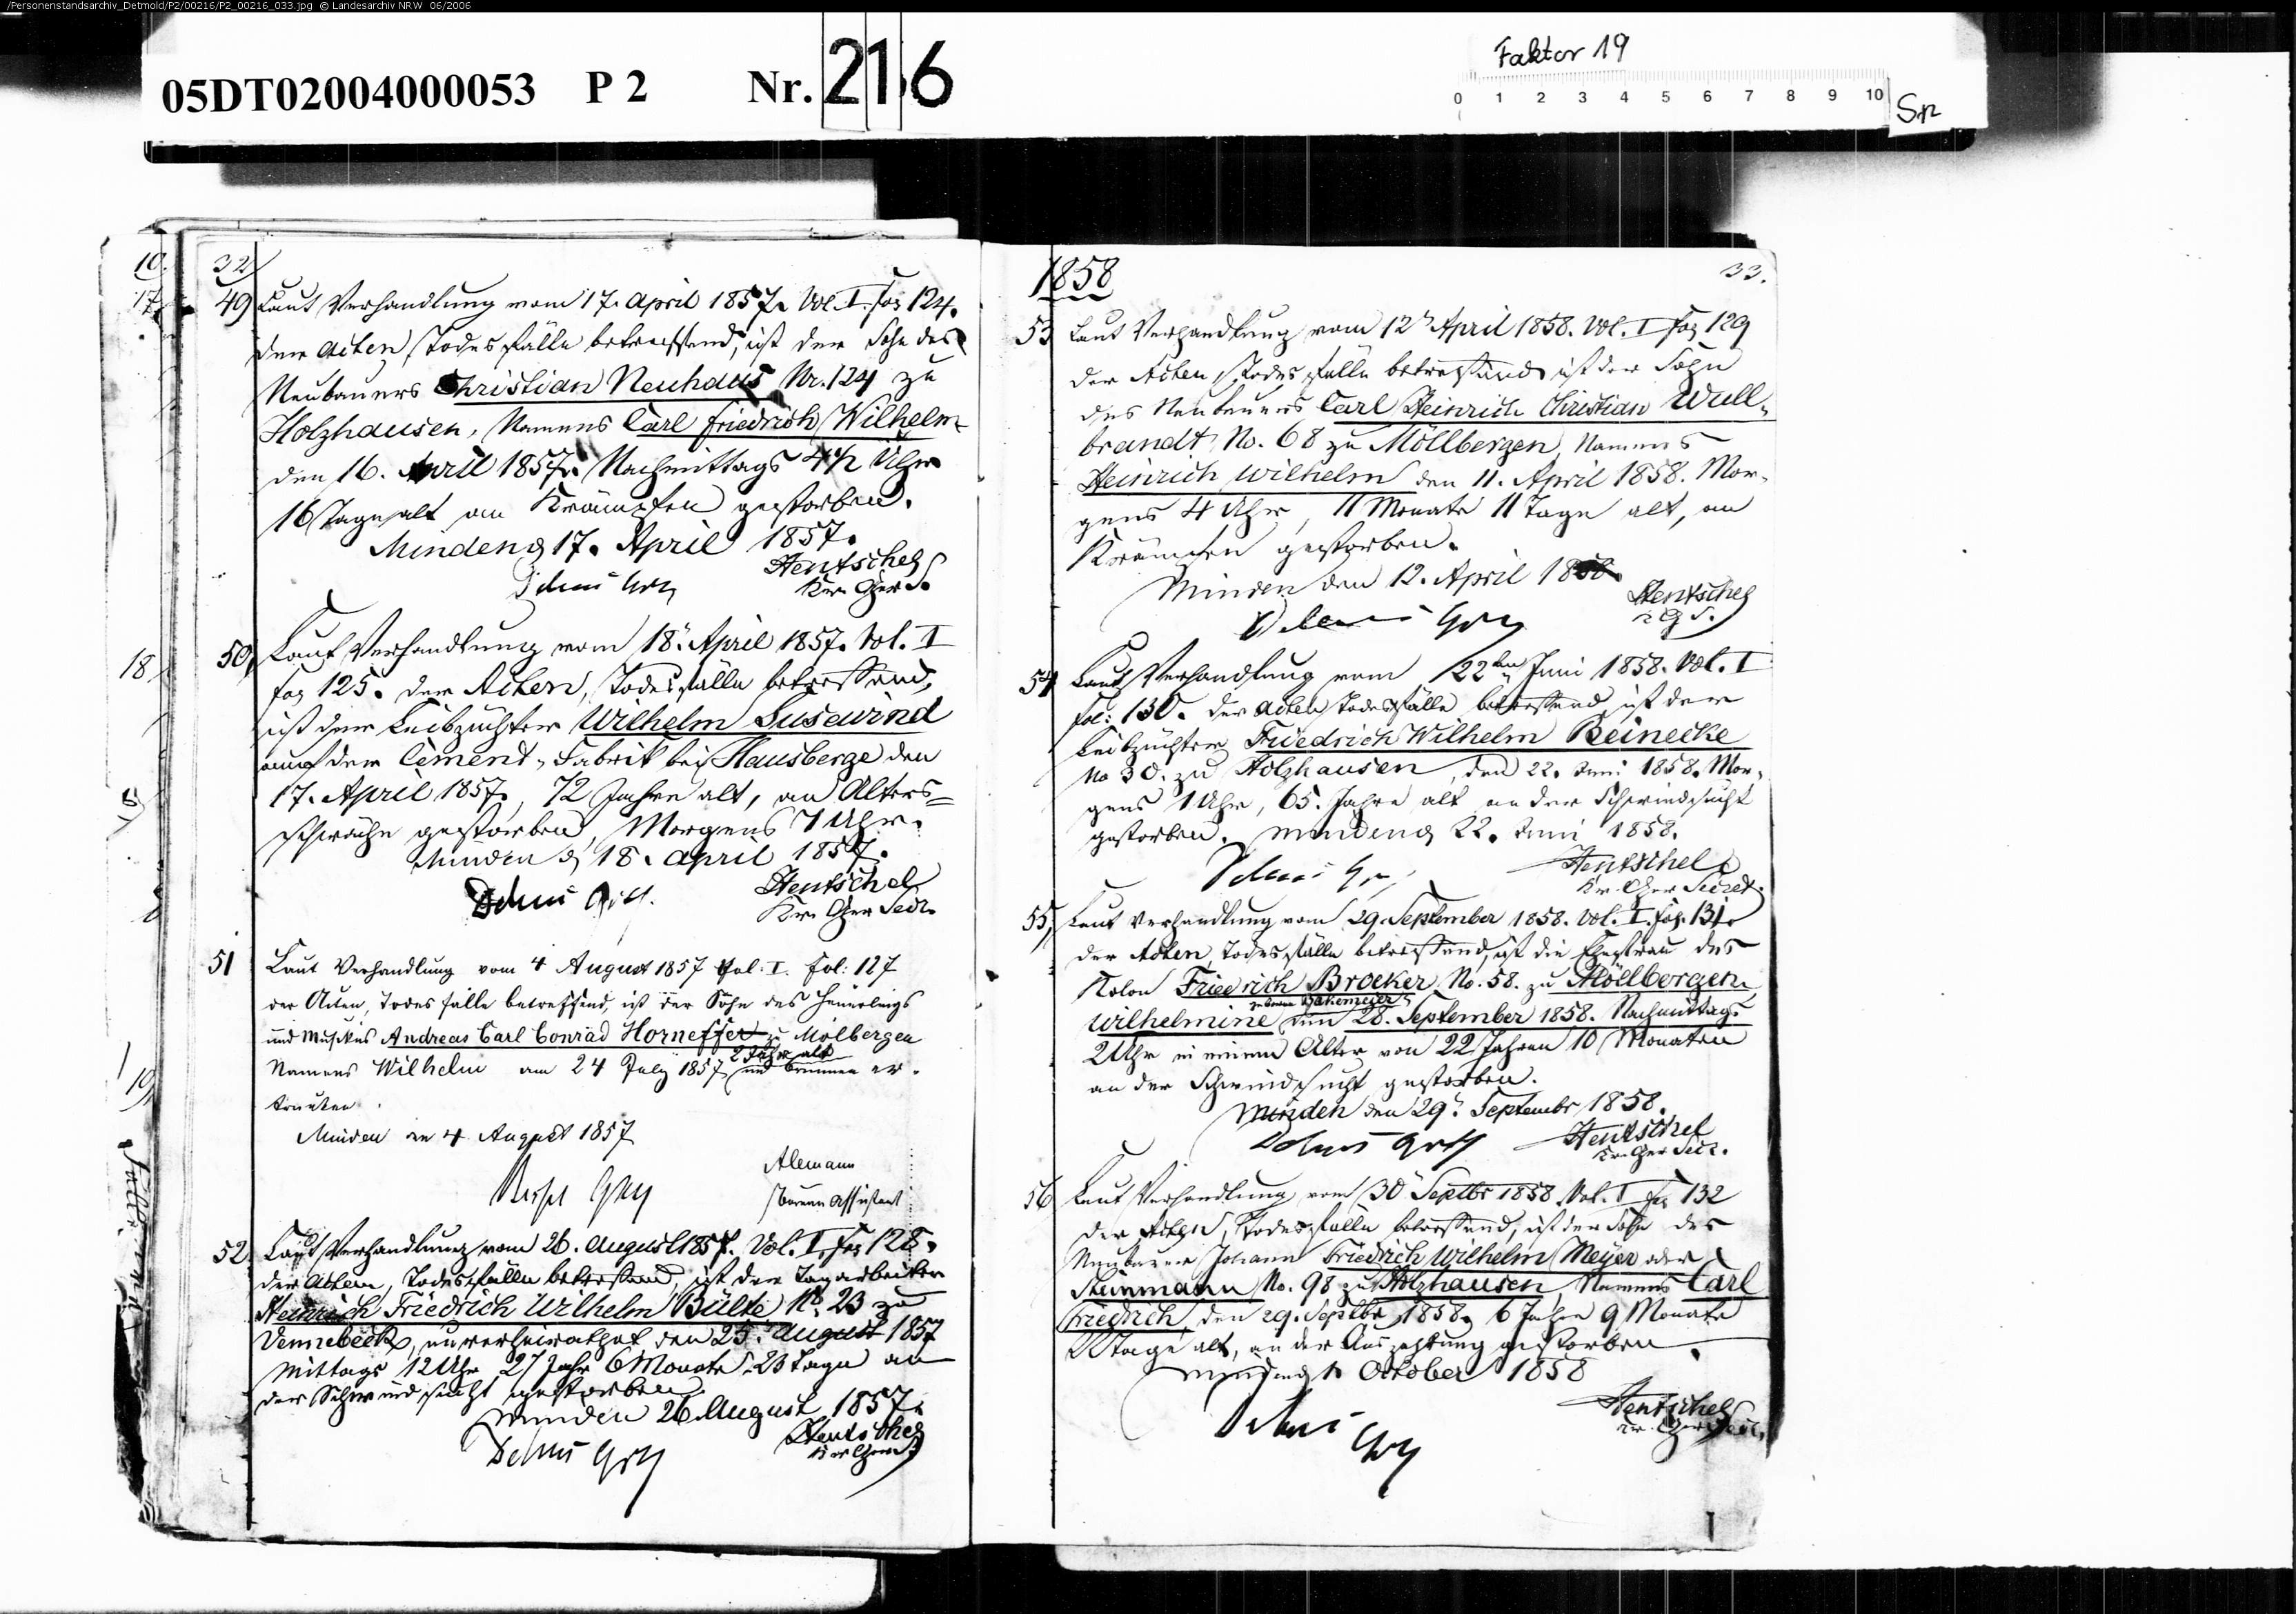 /Personenstandsarchiv_Detmold/P2/00216/P2_00216_033.jpg © Landesarchiv NRW 06/2006
05DT02004000053 P 2 Nr. 216
Faktor 19
0 1 2 3 4 5 6 7 8 9 10
Sp
10.
17.
18
19
32
49 Laut Verhandlung vom 17. April 1857. Vol. I. fol 124.
der Acten, Todesfälle betreffend, ist der Sohn des
Neubauers Christian Neuhaus Nr. 124 zu
Holzhausen, Namens Carl Friedrich Wilhelm
den 16. April 1857. Nachmittags 4 1/2 Uhr
16 Tage alt an Krämpfen gestorben.
Minden d 17. April 1857.
Delius Hentschel
Kr. Ger S.
50, Laut Verhandlung vom 18. April 1857. Vol. I
fol 125. der Acten, Todesfälle betreffend,
ist der Leibzüchter Wilhelm Susewind
auf der Cement-Fabrik bei Hausberge den
17. April 1857, 72 Jahre alt, an Alters-
schwäche gestorben, Morgens 7 Uhr.
Minden d 18. April 1857.
Delius Hentschel
Kr. Ger Secr.
51 Laut Verhandlung vom 4 August 1857 Vol: I. Fol: 127
der Acten, Todesfälle betreffend, ist der Sohn des Heuerlings
und Musikus Andreas Carl Conrad Horneffer zu Mölbergen
2 Jahr alt
Namens Wilhelm am 24 July 1857 im Brunnen er-
trunken.
Minden den 4 August 1857
Alemann
Bureau Assistent
52 Laut Verhandlung vom 26. August 1857. Vol. I, fol 128.
der Acten, Todesfälle betreffend, ist der Tagarbeiter
Heinrich Friedrich Wilhelm Bülte No. 23 zu
Vennebeck, unverheirathet den 25. August 1857
Mittags 12 Uhr 27 Jahr 6 Monate 23 Tage an
der Schwindsucht gestorben.
Minden 26 August 1857.
Delius Hentschel
Kr Ger S.
1858
33.
53 Laut Verhandlung vom 12ten April 1858. Vol. I fol 129
der Acten, Todesfälle betreffend ist der Sohn
des Neubauers Carl Heinrich Christian Wull-
brandt No. 68 zu Möllbergen Namens
Heinrich Wilhelm den 11. April 1858. Mor-
gens 4 Uhr, 11 Monate 11 Tage alt, an
Krämpfen gestorben.
Minden den 12. April 1858.
Delius Hentschel
54 Laut Verhandlung vom 22ten Juni 1858. Vol. I
fol: 130. der Acten Todesfälle betreffend ist der
Leibzüchter Friedrich Wilhelm Reinecke
No 30. zu Holzhausen, den 22. Juni 1858. Mor-
gens 1 Uhr, 65. Jahre alt an der Schwindsucht
gestorben. Minden d 22. Juni 1858.
Delius Hentschel
Kr. Ger Secret.
55, Laut Verhandlung vom 29. September 1858. Vol. I. fol. 131.
der Acten, Todesfälle betreffend, ist die Ehefrau des
Kolon Friedrich Broeker No. 58. zu Möllbergen
Wilhelmine den 28. September 1858. Nachmittags
2 Uhr in einem Alter von 22 Jahren 10 Monaten
an der Schwindsucht gestorben.
Minden den 29. Septembr 1858.
Delius Hentschel
Kr. Ger Secr.
56 Laut Verhandlung vom 30 Septbr 1858 Vol. I fol 132
der Acten, Todesfälle betreffend, ist der Sohn des
Neubauer Johann Friedrich Wilhelm Meyer oder
Steinmann No. 98 zu Holzhausen, Namens Carl
Friedrich, den 29. Septbr 1858, 6 Jahre 9 Monate
Tage alt, an der Auszehrung gestorben.
Minden d 1. October 1858
Delius Hentschel